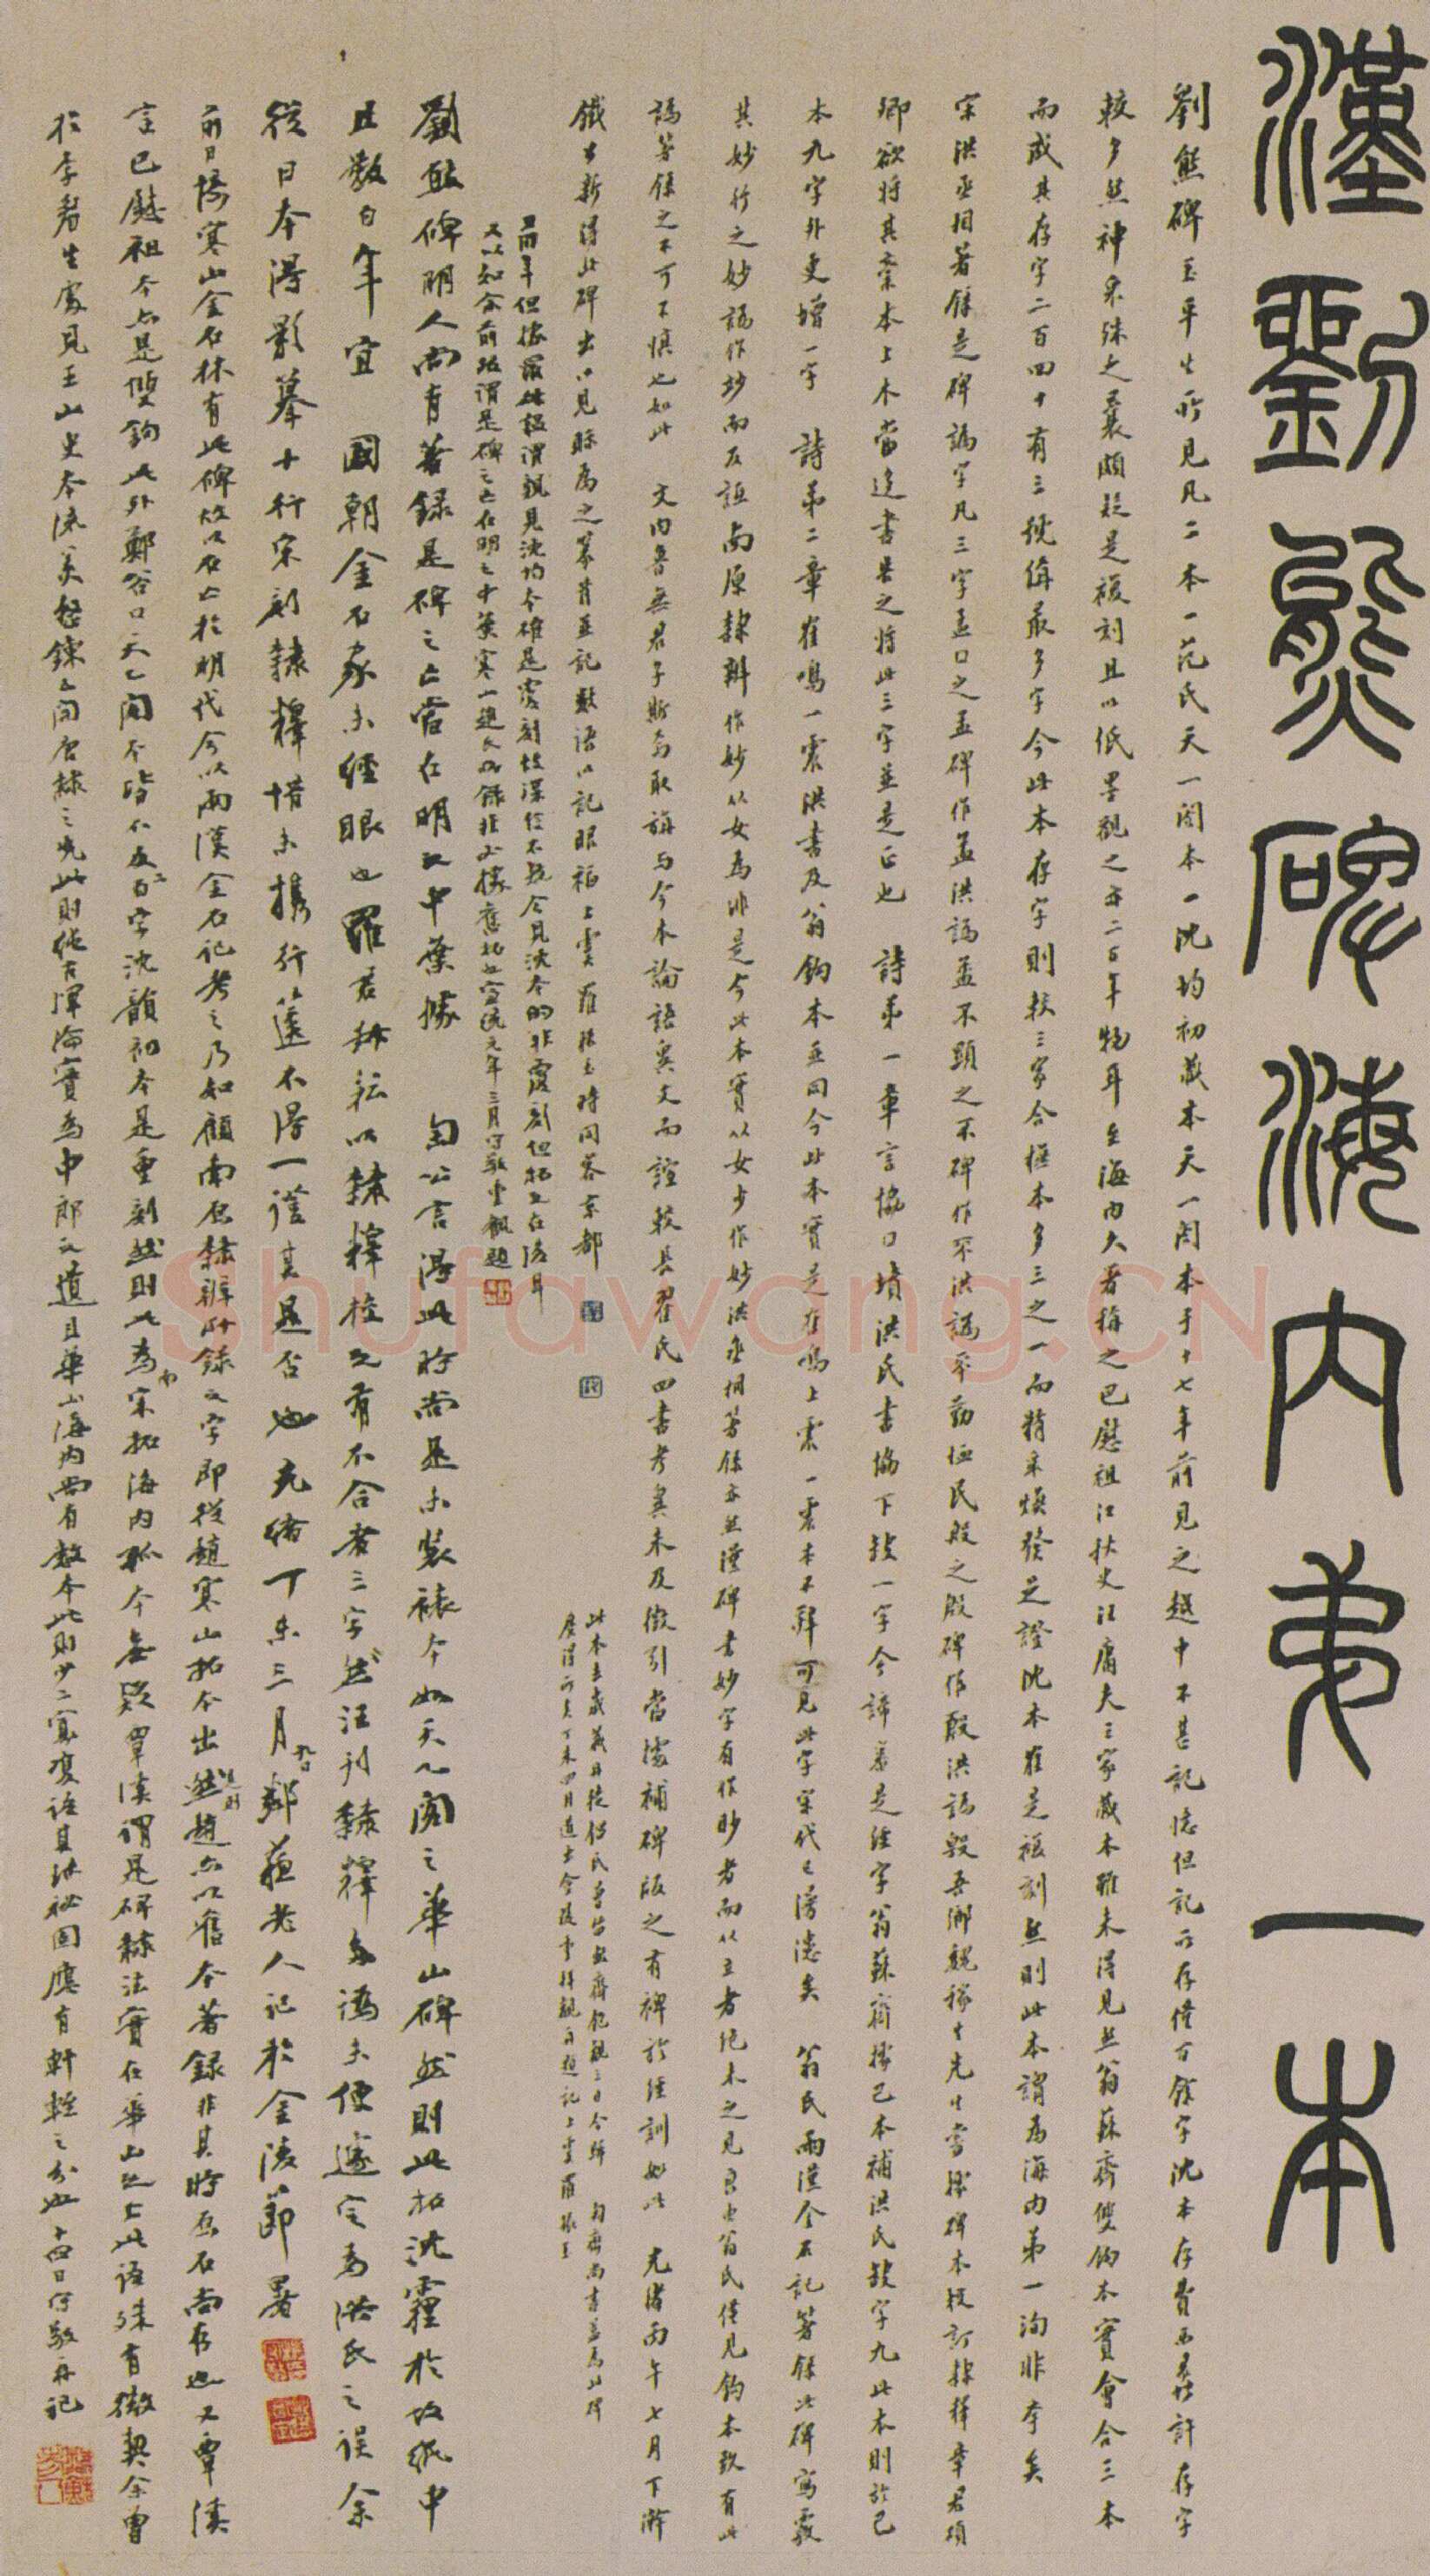 漢劉熊碑海內弟一本
劉熊碑玉平生所見凡二本一范氏天一閣本一沈均初藏本天一閣本于十七年前見之越中不甚記憶但記所存僅百餘字沈本存字
較多然神采殊乏曩頗疑是復刻且以紙墨觀之亦二百年物耳至海內大著稱之巴慰祖江秋史汪庸夫三家藏本雖未得見然翁蘇齋雙鉤本實會合三本
而成其存字二百四十有三號偁最多字今此本存字則較三家合橅本多三之一而精采煥發足證沈本雖是複刻然則此本謂為海內第一洵非夸矣
宋洪丞相著錄是碑譌字凡三字孟口之孟碑作孟洪譌盖不顯之不碑作不洪譌平勤恤民殷之殷碑作殷洪譌毀吾鄉魏稼孫先生嘗據碑本校訂隸釋章君碩
卿欲將其稾本上木當迻書告之將此三字並是正也 詩第一章言協口墳洪氏書協下缺一字今諦審是經字翁蘇齋據巴本補洪氏缺字九此本則於巴
本九字外更增一字 詩第二章隹鳴一震洪書及翁鉤本並同今此本實是隹鳴上震一震本不辭可見此字宋代已漫漶矣 翁氏兩漢金石記著錄此碑寫霰
其妙行之妙譌作玅而反詆南原隸辨作妙从女為非是今此本實从女少作妙洪丞相著錄亦然漢碑書妙字有作眇者而从立者絕未之見良由翁氏僅見鉤本致有此
譌著錄之不可不慎也如此 文內魯無君子斯焉取旃與今本論語異文而證較長翟氏四書考異未及徵引當據補碑版之有裨於經訓如此 光緒丙午七月下澣
鐵雲新得此碑出以見眎為之幕首並記數語以記眼福上虞羅振玉時同客京都
前年但據羅叔蘊謂親見沈均本確是覆刻故深信不疑今見沈本的非覆刻但拓之在後耳
又以知余前跋謂是碑之亡在明之中葉寒一趙氏所錄非必據舊拓也宣統元年三月守敬重觀題
此本去歲冀日從
匋齋尚書
劉熊碑明人尚有著錄是碑之亡當在明之中葉據 匋公言得此時尚是未裝裱本如天一閣之華山碑然則此拓沈霾於故紙中
且數百年宜 國朝金石家未經眼也羅君叔耘以隸釋校之有不合者三字然汪刊隸釋多譌未便遽定為洪氏之誤余
從日本得影摹十行宋刻隸釋惜未攜行篋不得一證其是否也光緒丁未三月鄰蘇老人記於金陵節署
前日據寒山金石林有此碑故以石亡於明代今以兩漢金石記考之乃如顧南原隸辨所錄之字即從趙寒山拓本出然趙亦以舊本著錄非其時原石尚存也又覃溪
言巴慰祖本亦是雙鉤此外鄭谷口天一閣本皆不及百字沈韻初本是重刻然則此為宋拓海內孤本無疑覃溪謂是碑隸法實在華山之上此語殊有微契余曾
於李眉生處見王山史本流美悉鍊之開唐隸之先此則純古渾淪實為中郎之遺且華山海內尚有數本此則少二寡雙語其珍祕固應有軒輊之分也十四日守敬再記